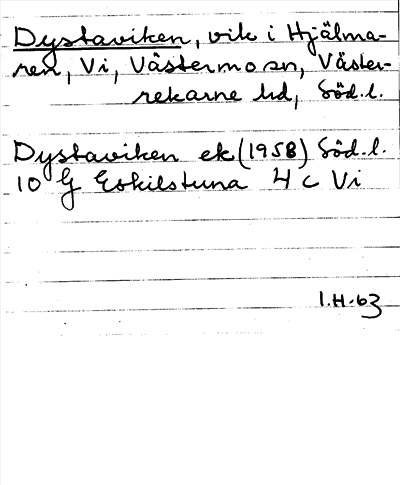 Dystaviken, vik i Hjälma-
ren, Vi, Västermo sn, Väster-
rekarne hd, Söd.l.
Dystaviken ek (1958) Söd.l.
10 G Eskilstuna 4 c Vi
I.H.63